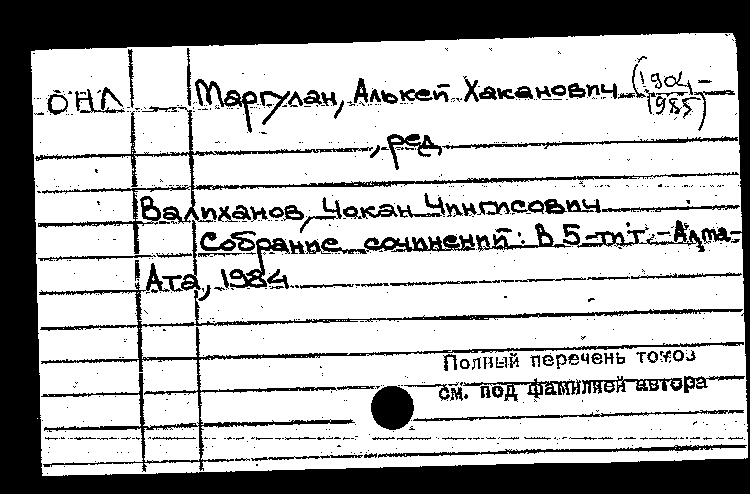 ОНЛ Маргулан, Алькей Хаканович (1904-
1985)
, ред.
Валиханов, Чокан Чингисович
Собрание сочинений: В 5-ти т. - Алма-
Ата, 1984
Полный перечень томов
см. под фамилией автора